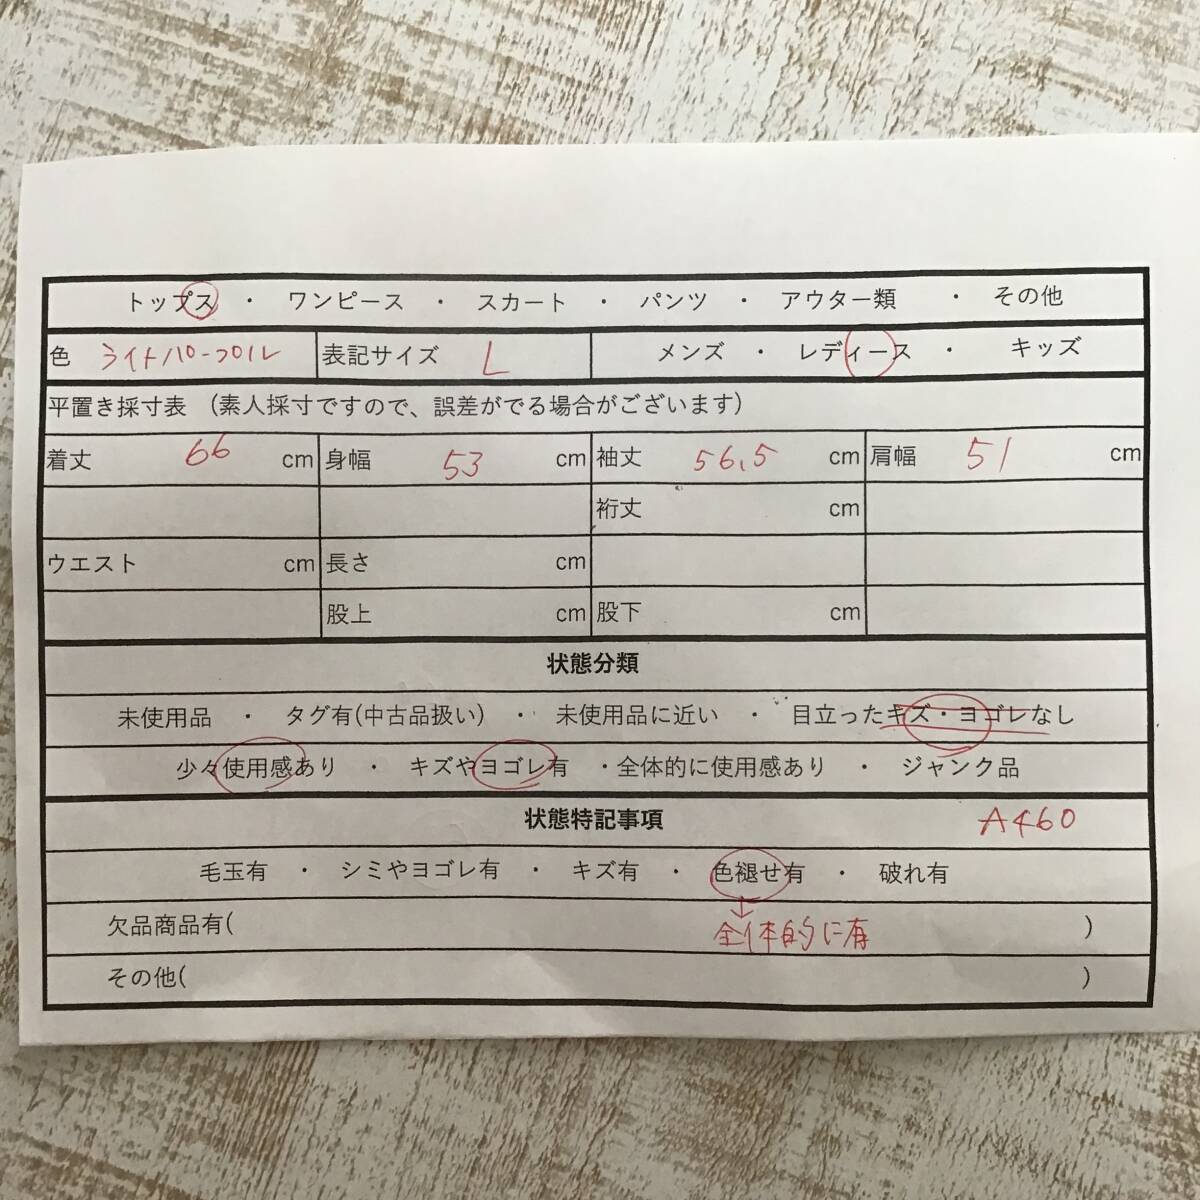 トップス ・ ワンピース ・ スカート ・ パンツ ・ アウター類 ・ その他
色 ライトパープル 表記サイズ L メンズ ・ レディース ・ キッズ
平置き採寸表 (素人採寸ですので、誤差がでる場合がございます)
着丈 66 cm 身幅 53 cm 袖丈 56.5 cm 肩幅 51 cm
裄丈 cm
ウエスト cm 長さ cm
股上 cm 股下 cm
状態分類
未使用品 ・ タグ有(中古品扱い) ・ 未使用品に近い ・ 目立ったキズ・ヨゴレなし
少々使用感あり ・ キズやヨゴレ有 ・全体的に使用感あり ・ ジャンク品
状態特記事項 A460
毛玉有 ・ シミやヨゴレ有 ・ キズ有 ・ 色褪せ有 ・ 破れ有
欠品商品有( 全体的に有 )
その他( )